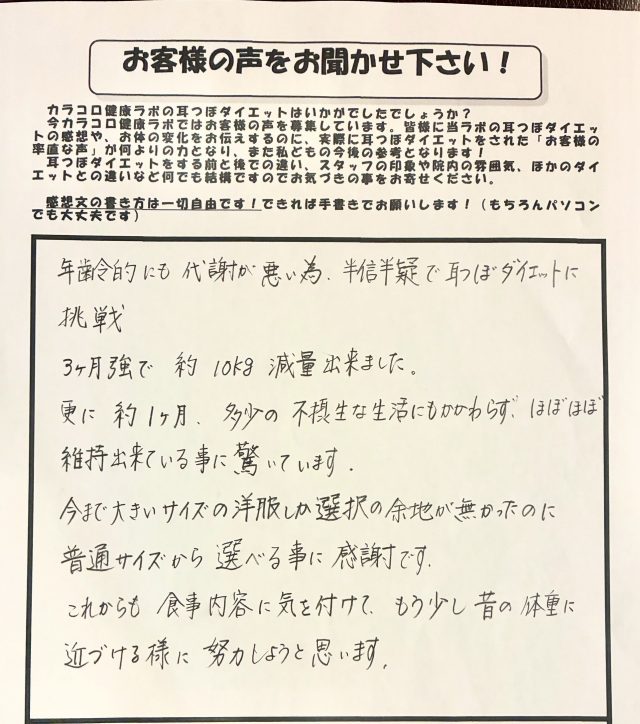 お客様の声をお聞かせ下さい！
カラコロ健康ラボの耳つぼダイエットはいかがでしたでしょうか？
今カラコロ健康ラボではお客様の声を募集しています。皆様に当ラボの耳つぼダイエッ
トの感想や、お体の変化をお伝えするのに、実際に耳つぼダイエットをされた「お客様の
率直な声」が何よりの力となり、また私どもの今後の参考となります！
耳つぼダイエットをする前と後での違い、スタッフの印象や院内の雰囲気、ほかのダイ
エットとの違いなど何でも結構ですのでお気づきの事をお寄せください。
感想文の書き方は一切自由です！できれば手書きでお願いします！（もちろんパソコン
でも大丈夫です）
年齢的にも 代謝が悪い為、半信半疑で耳つぼダイエットに
挑戦
3ヶ月強で 約 10kg 減量出来ました。
更に 約1ヶ月、多少の 不摂生な生活にもかかわらず、ほぼほぼ
維持出来ている事に驚いています。
今まで大きいサイズの洋服しか選択の余地が無かったのに
普通サイズから 選べる事に感謝です。
これからも 食事内容に気を付けて、もう少し昔の体重に
近づける様に 努力しようと思います。